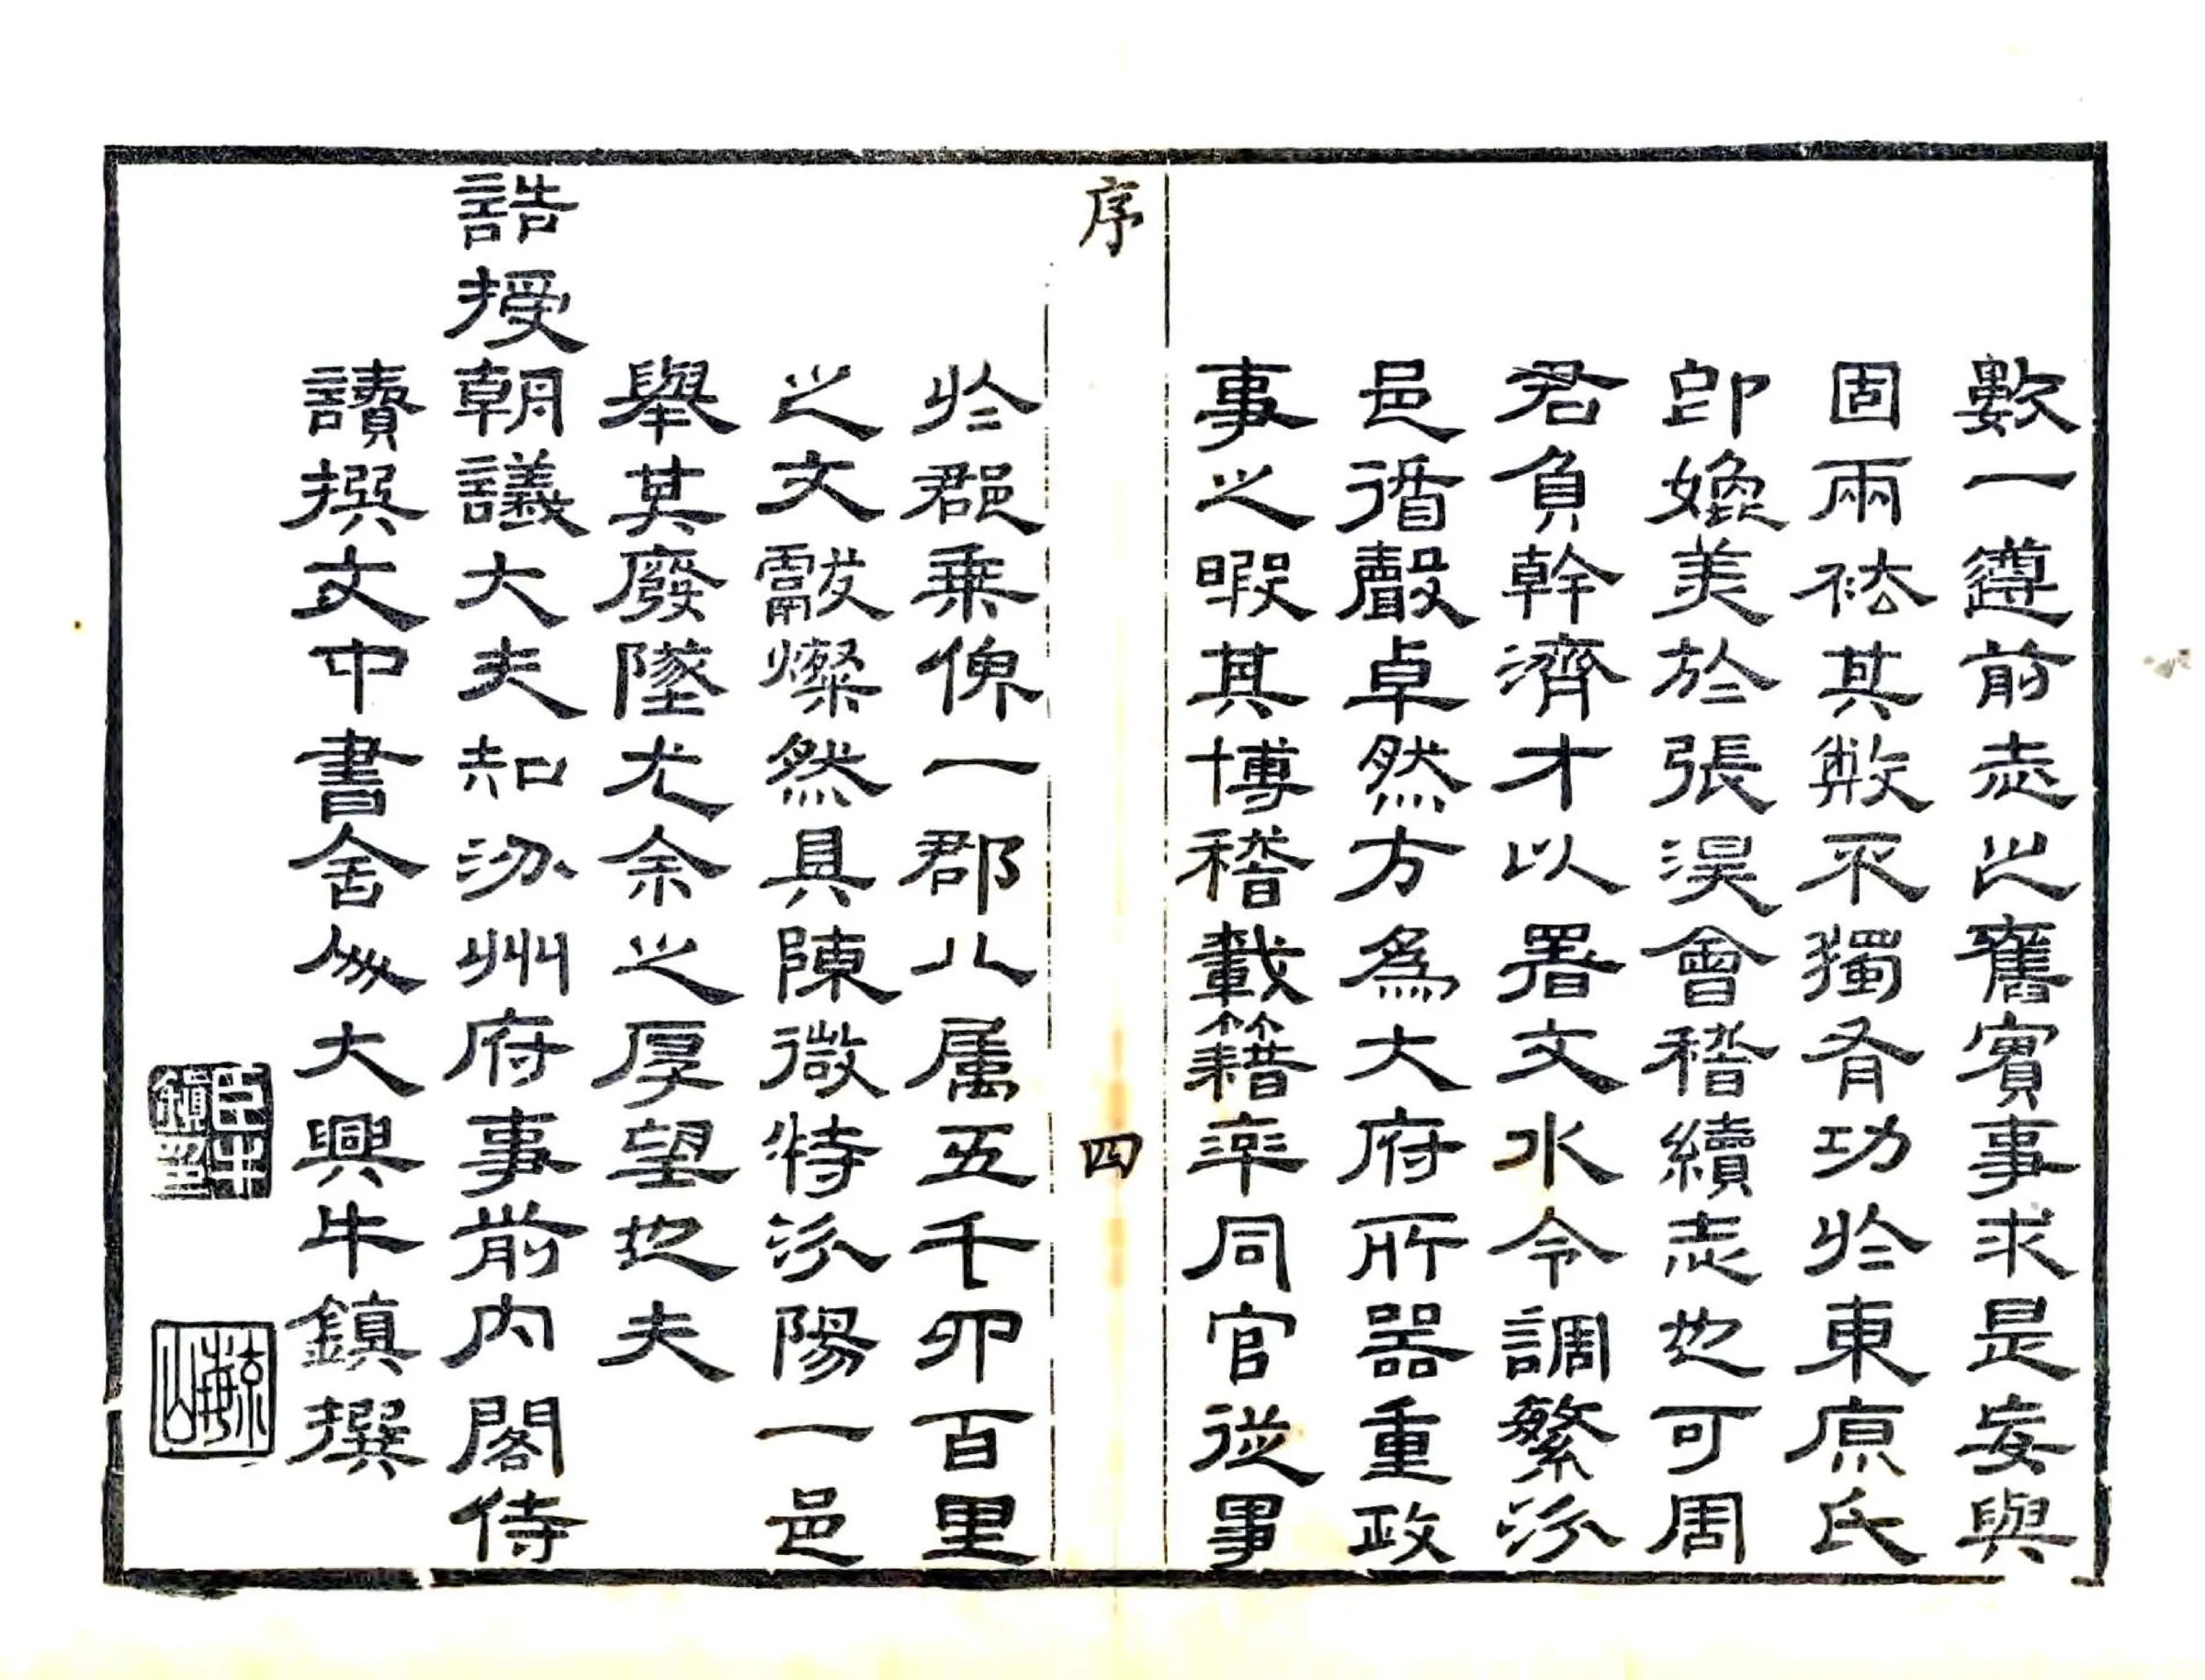 數一遵前志之舊實事求是妄與
固兩祛其弊不獨有功於東原氏
即媲美於張淏會稽續志也可周
君負幹濟才以署文水令調繁汾
邑循聲卓然方為大府所器重政
事之暇其博稽載籍率同官從事
序
四
於郡乘俾一郡八屬五千卯百里
之文獻燦然具陳微特汾陽一邑
舉其廢墜尤余之厚望也夫
誥授朝議大夫知汾州府事前內閣侍
讀撰文中書舍人大興牛鎮撰
臣牛鎮印